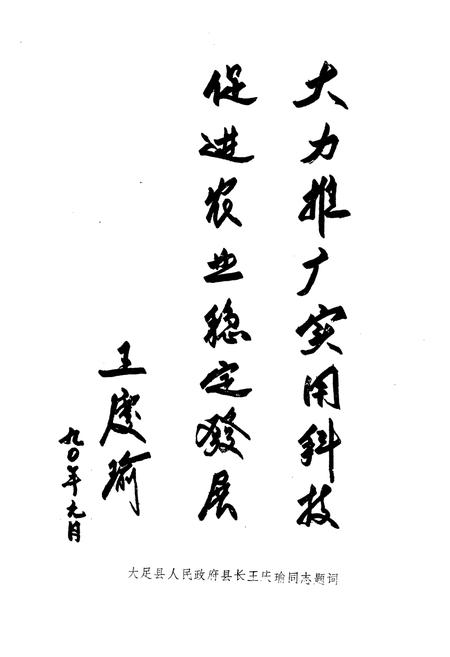 大力推广实用科技
促进农业稳定發展
王庆瑜
九〇年元月
大足县人民政府县长王庆瑜同志题词